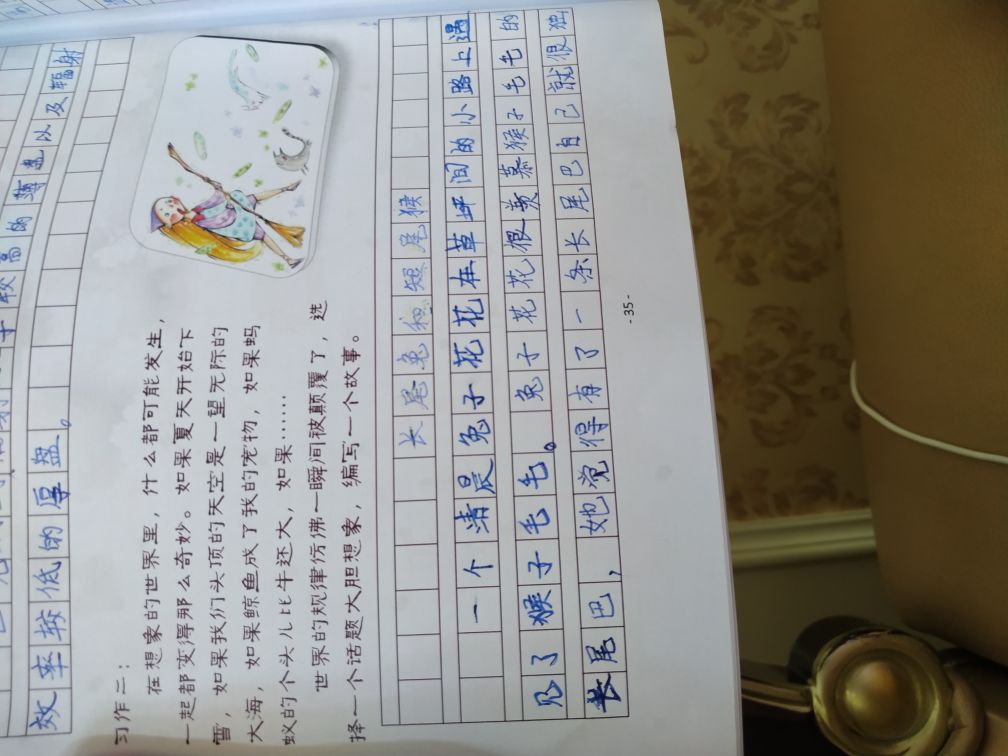 较高的薄 以及辐射
效率较低的厚盘。
习作二：
在想象的世界里，什么都可能发生，
一起都变得那么奇妙。如果夏天开始下
雪，如果我们头顶的天空是一望无际的
大海，如果鲸鱼成了我的宠物，如果蚂
蚁的个头儿比牛还大，如果……
世界的规律仿佛一瞬间被颠覆了，选
择一个话题大胆想象，编写一个故事。
长尾兔和短尾猴
一个清晨兔子花花在草坪间的小路上遇
见了猴子毛毛。兔子花花很羡慕猴子毛毛的
长尾巴，她觉得有了一条长尾巴自己就很独
-35-